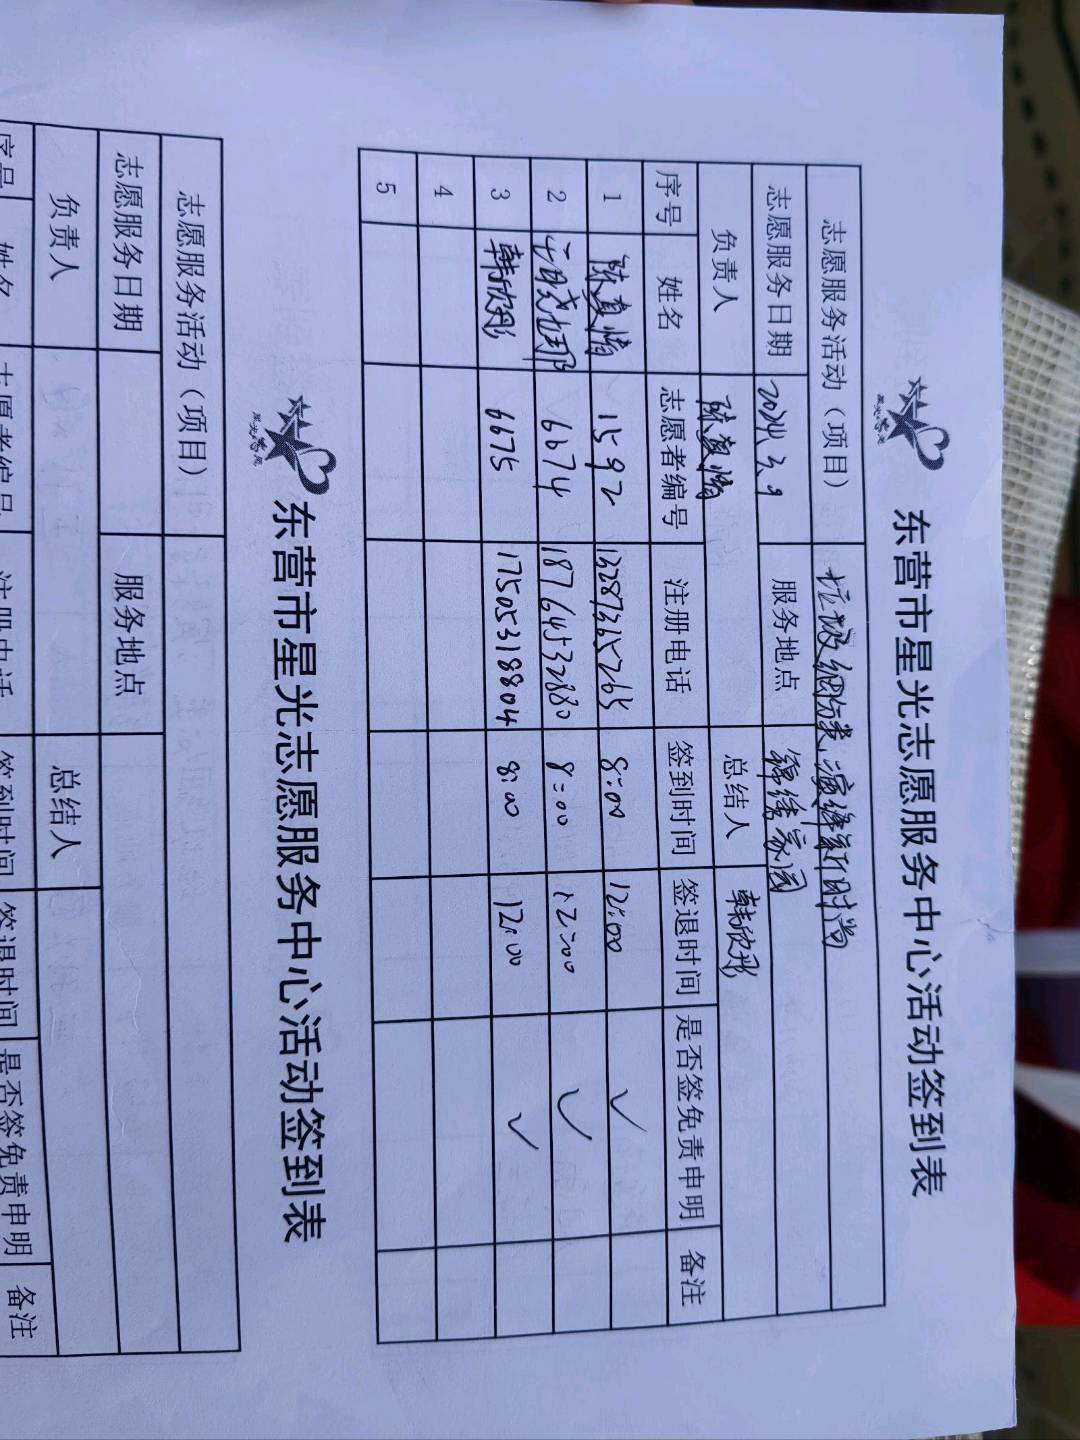 东营市星光志愿服务中心活动签到表
志愿服务活动（项目） 垃圾细分类,演绎新时尚
志愿服务日期 2024.3.9 服务地点 锦绣家园
负责人 陈真情 总结人 韩欣彤
序号 姓名 志愿者编号 注册电话 签到时间 签退时间 是否签免责申明 备注
1 陈真情 1592 13287365265 8:00 12:00 ✓
2 6674 18764532880 8:00 12:00 ✓
3 韩欣彤 6675 17505318804 8:00 12:00 ✓
4
5
星光志愿
东营市星光志愿服务中心活动签到表
志愿服务活动（项目）
志愿服务日期 服务地点
负责人 总结人
序号 姓名 志愿者编号 注册电话 签到时间 签退时间 是否签免责申明 备注